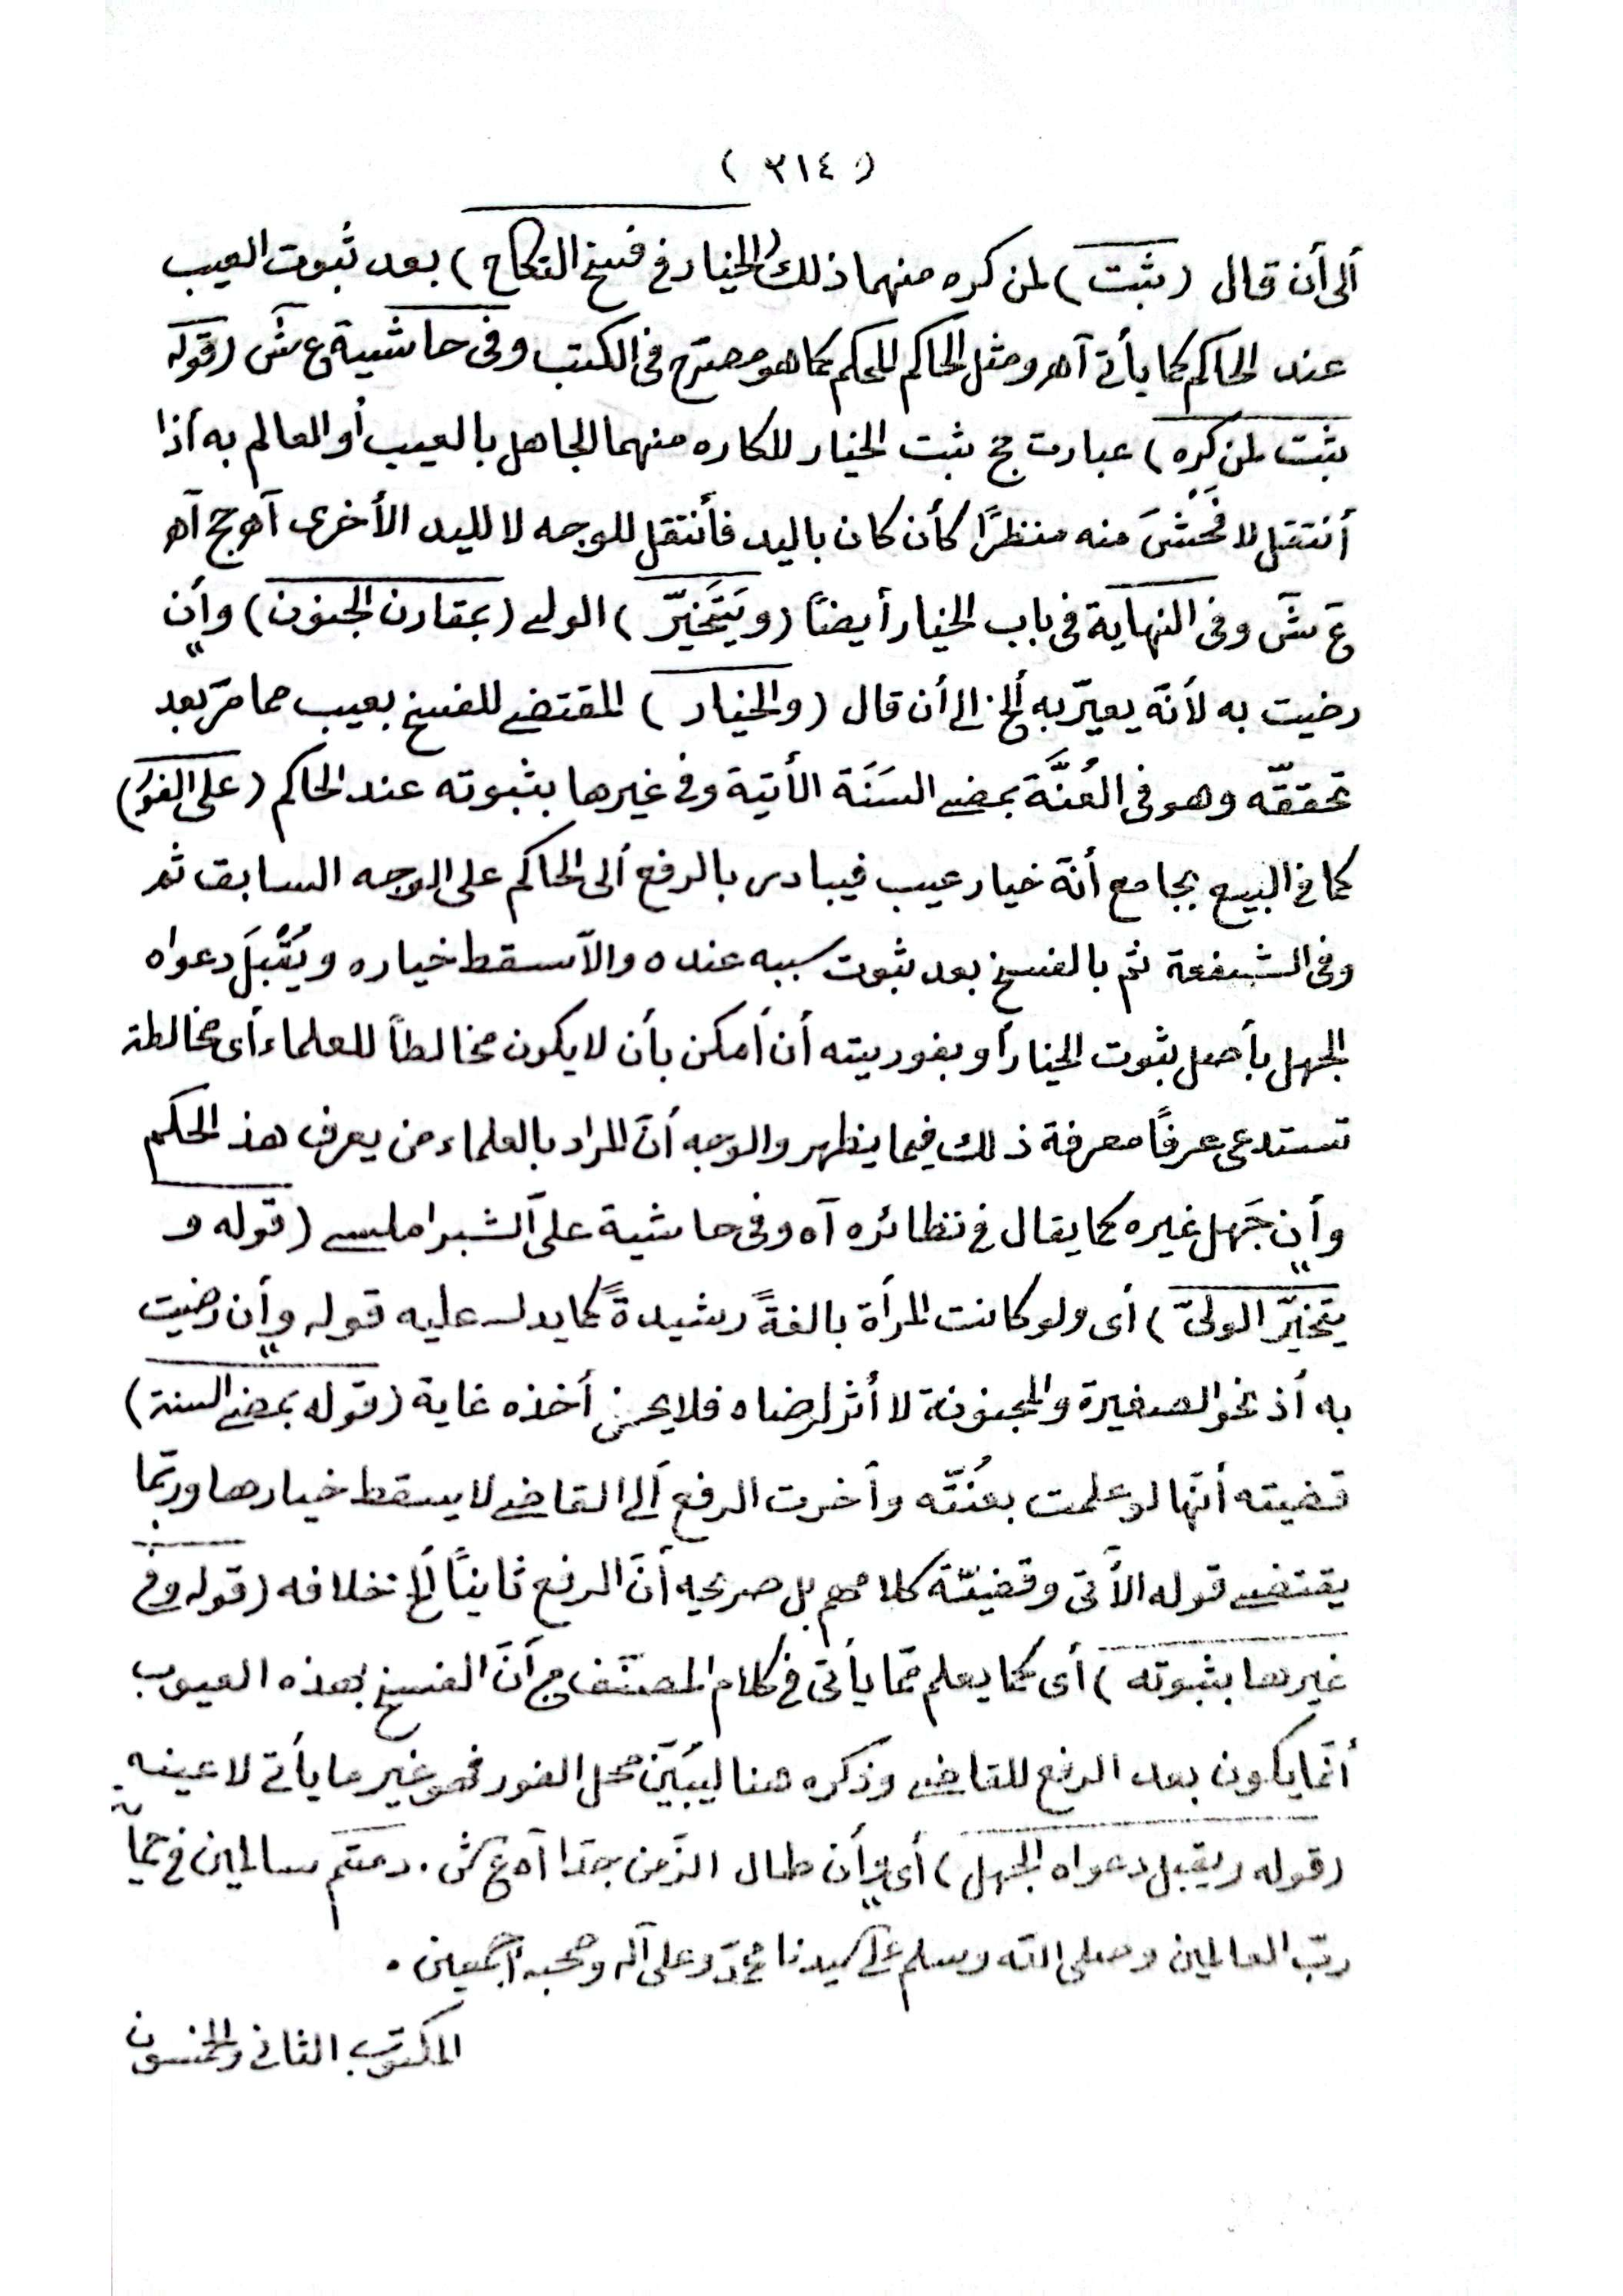 ( ٣١٤ )
ألى أن قال (ثبت) لمن كره منهما ذلك (الخيار في فسخ النكاح) بعد ثبوت العيب
عند الحاكم كما يأتى آهـ ومثل الحاكم المحكم كما هو مصرّح فى الكتب وفى حاشية ع ش (قوله
ثبت لمن كره) عبارت حج ثبت الخيار للكاره منهما الجاهل بالعيب أو العالم به أذا
أنتقل لافحش منه منظرًا كأن كان باليد فأنتقل للوجه لا لليد الأخرى آهـ حج آهـ
ع ش وفى النهاية فى باب الخيار أيضًا (ويَتَخَيّر) الولى (بمقارن الجنون) وأن
رضيت به لأنّه يعيّر به ألخ الى أن قال (والخيار) المقتضى للفسخ بعيب مما مرّ بعد
تحققّه وهو فى العُنَّة بمضى السَنَة الأتية وفى غيرها بثبوته عند الحاكم (على الفور)
كما فى البيع بجامع أنّه خيار عيب فيبادر بالرفع ألى الحاكم على الوجه السابق ثم
وفى الشفعة ثم بالفسخ بعد ثبوت سببه عنده والاّ سقط خياره ويُقْبَل دعواه
الجهل بأصل ثبوت الخيار أو بفوريته أن أمكن بأن لا يكون مخالطاً للعلماء أى مخالطة
تستدعى عرفًا معرفة ذلك فيما يظهر والوجه أنّ المراد بالعلماء من يعرف هذ الحكم
وأن جَهل غيره كما يقال فى نظائره آه وفى حاشية على الشبراملسى (قوله و
يتخيّر الولىّ) أى ولو كانت المرأة بالغةً رشيدةً كما يدل عليه قوله وأن رضيت
به أذ نحو الصغيرة والمجنونة لا أثر لرضاه فلا يحسن أخذه غاية (قوله بمضى السنة)
قضيته أنّها لو علمت بعُنّته وأخرت الرفع ألى القاضى لا يسقط خيارها وربّما
يقتضى قوله الأتى وقضيّة كلامهم بل صريحه أنّ الرفع ثانيًا ألخ خلافه (قوله وفى
غيرها بثبوته) أى كما يعلم ممّا يأتى فى كلام المصنّف من أنّ الفسخ بهذه العيوب
أنّما يكون بعد الرفع للقاضى وذكره هنا ليبيّن محل الفور فهو غير ما يأتى لا عينه
(قوله ويقبل دعواه الجهل) أى وأن طال الزّمن جدّا آه ع ش . دمتم سالمين فى
ربّ العالمين وصلى الله وسلم على سيدنا محمّد وعلى آله وصحبه أجمعين .
المكتوب الثانى والخمسون